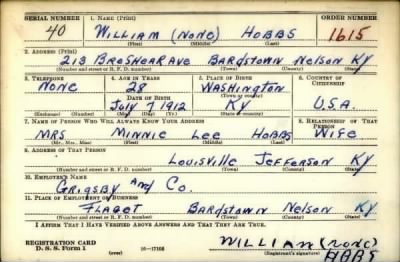 SERIAL NUMBER 1. NAME (Print) ORDER NUMBER
40 WILLIAM (NONE) HOBBS 1615
(First) (Middle) (Last)
2. ADDRESS (Print)
213 BROSHEAR AVE BARDSTOWN NELSON KY
(Number and street or R. F. D. number) (Town) (County) (State)
3. TELEPHONE 4. AGE IN YEARS 5. PLACE OF BIRTH 6. COUNTRY OF CITIZENSHIP
NONE 28 WASHINGTON
DATE OF BIRTH (Town or county)
JULY 7 1912 KY U.S.A.
(Exchange) (Number) (Mo.) (Day) (Yr.) (State or country)
7. NAME OF PERSON WHO WILL ALWAYS KNOW YOUR ADDRESS 8. RELATIONSHIP OF THAT PERSON
MRS MINNIE LEE HOBBS WIFE
(Mr., Mrs., Miss) (First) (Middle) (Last)
9. ADDRESS OF THAT PERSON
LOUISVILLE JEFFERSON KY
(Number and street or R. F. D. number) (Town) (County) (State)
10. EMPLOYER'S NAME
GRIGSBY AND CO.
11. PLACE OF EMPLOYMENT OR BUSINESS
FLAGET BARDSTOWN NELSON KY
(Number and street or R. F. D. number) (Town) (County) (State)
I AFFIRM THAT I HAVE VERIFIED ABOVE ANSWERS AND THAT THEY ARE TRUE.
REGISTRATION CARD
D. S. S. Form 1 16—17105 WILLIAM (NONE)
(Registrant's signature) HOBBS